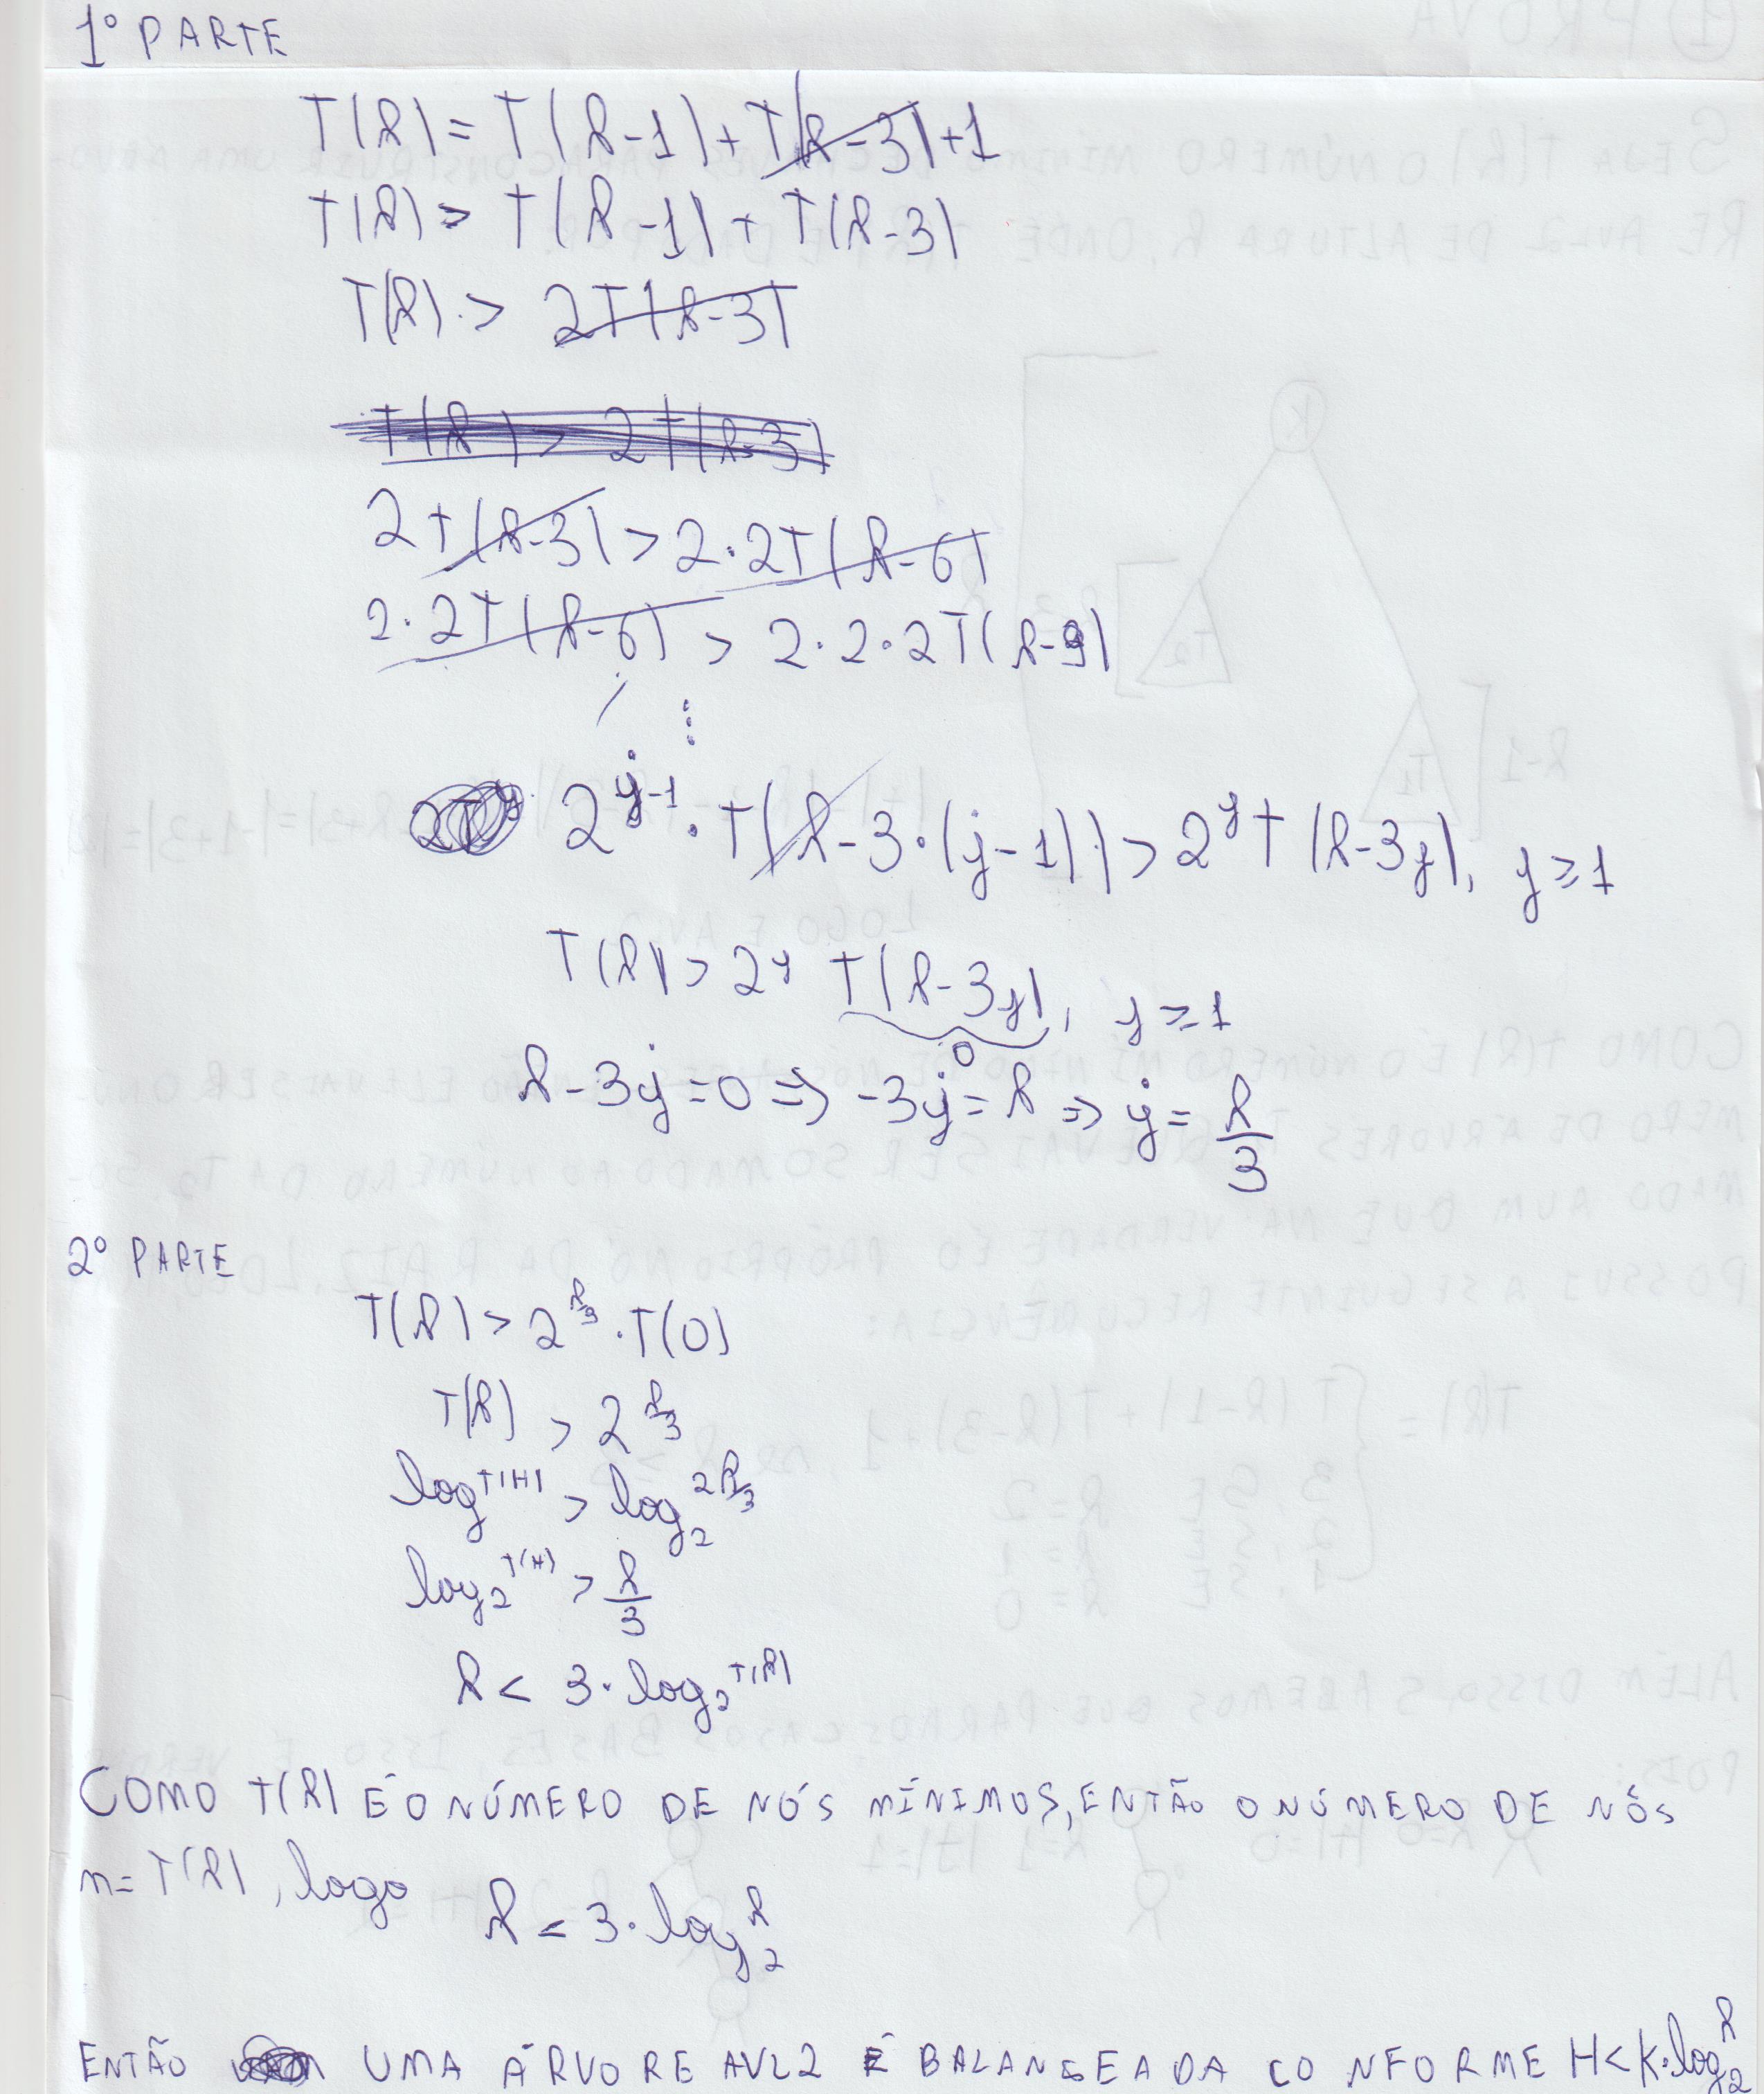 1º PARTE
T(h) = T(h-1) + T(h-3) + 1
T(h) > T(h-1) + T(h-3)
T(h) > 2T(h-3)
T(h) > 2T(h-3)
2T(h-3) > 2·2T(h-6)
2·2T(h-6) > 2·2·2T(h-9)
⋮
2^(y-1)·T(h-3·(y-1)) > 2^y T(h-3y), y ≥ 1
T(h) > 2^y T(h-3y), y ≥ 1
0
h-3y=0 ⇒ -3y=h ⇒ y=h/3
2º PARTE
T(h) > 2^(h/3)·T(0)
T(h) > 2^(h/3)
log^T(H) > log_2^2^(h/3)
log_2^T(H) > h/3
h < 3·log_2^T(h)
COMO T(h) É O NÚMERO DE NÓS MÍNIMOS, ENTÃO O NÚMERO DE NÓS
n=T(h), logo
h < 3·log_2^h
ENTÃO UMA ÁRVORE AVL2 É BALANCEADA CONFORME H<K·log_2^h